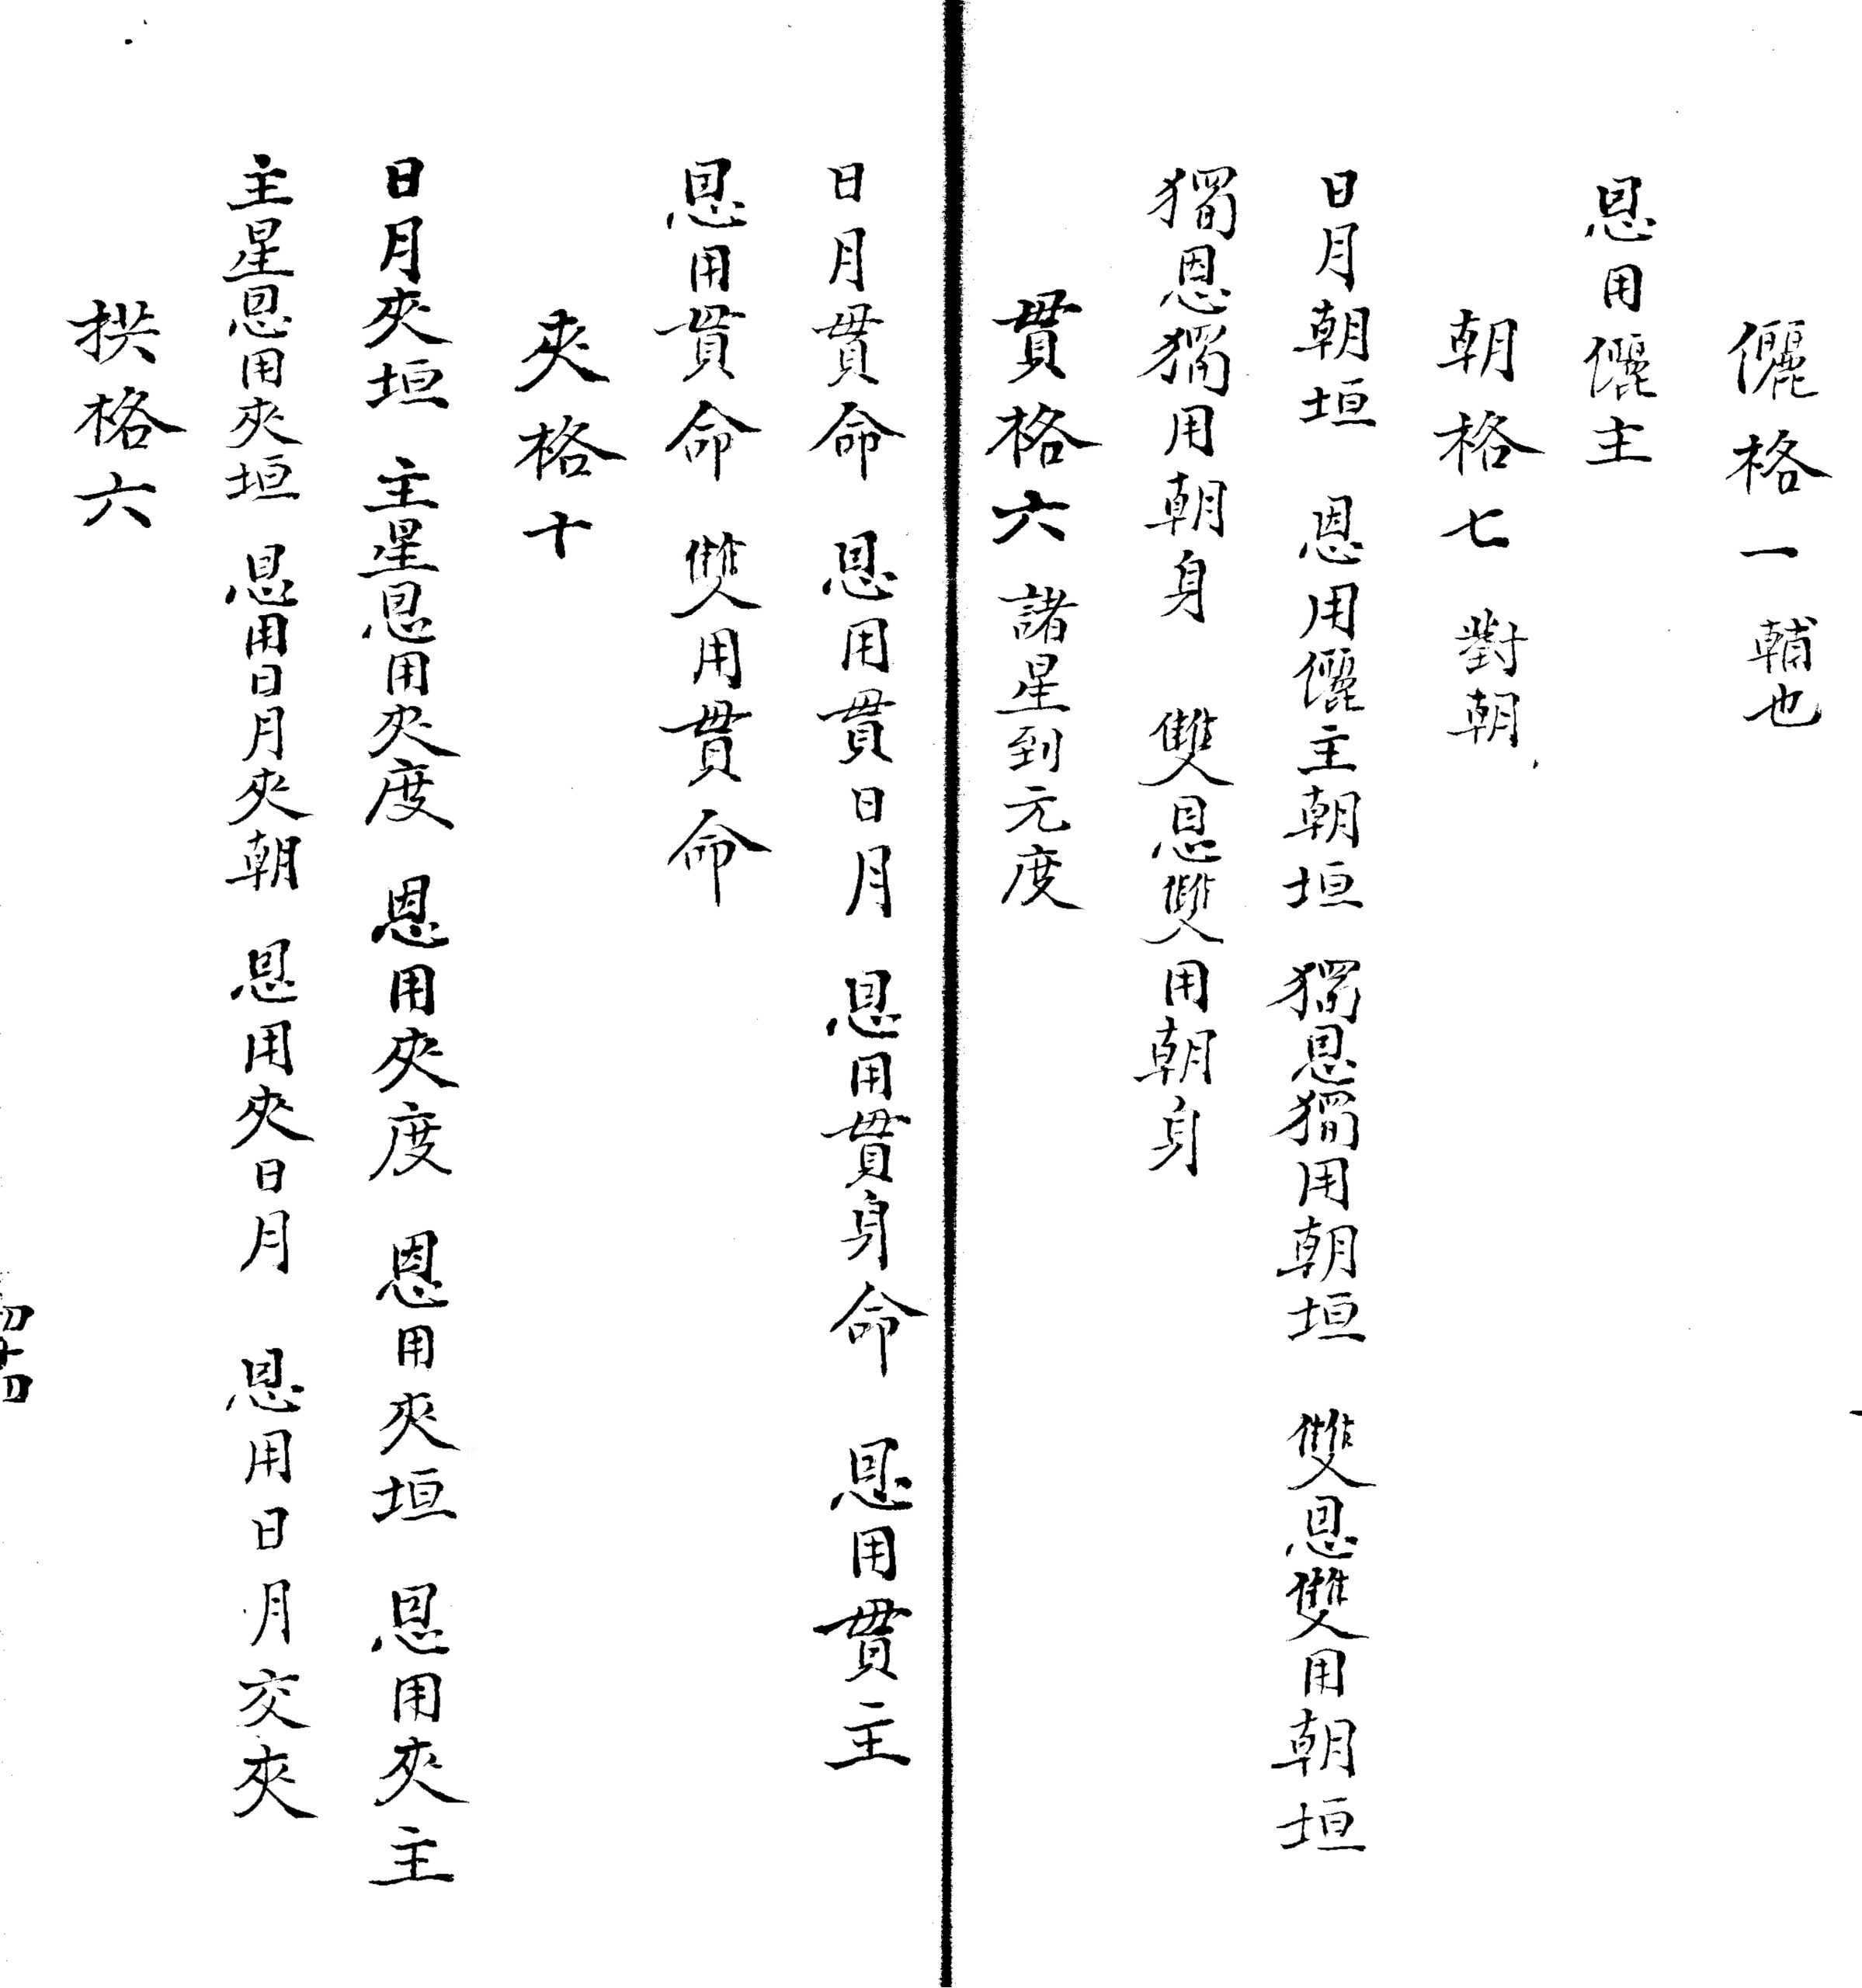 儷格一 輔也
恩用儷主
朝格七 對朝
日月朝垣 恩用儷主朝垣 獨恩獨用朝垣 雙恩雙用朝垣
獨恩獨用朝身 雙恩雙用朝身
貫格六 諸星到元度
日月貫命 恩用貫日月 恩用貫身命 恩用貫主
恩用貫命 雙用貫命
夾格十
日月夾垣 主星恩用夾度 恩用夾度 恩用夾垣 恩用夾主
主星恩用夾垣 恩用日月夾朝 恩用夾日月 恩用日月交夾
拱格六